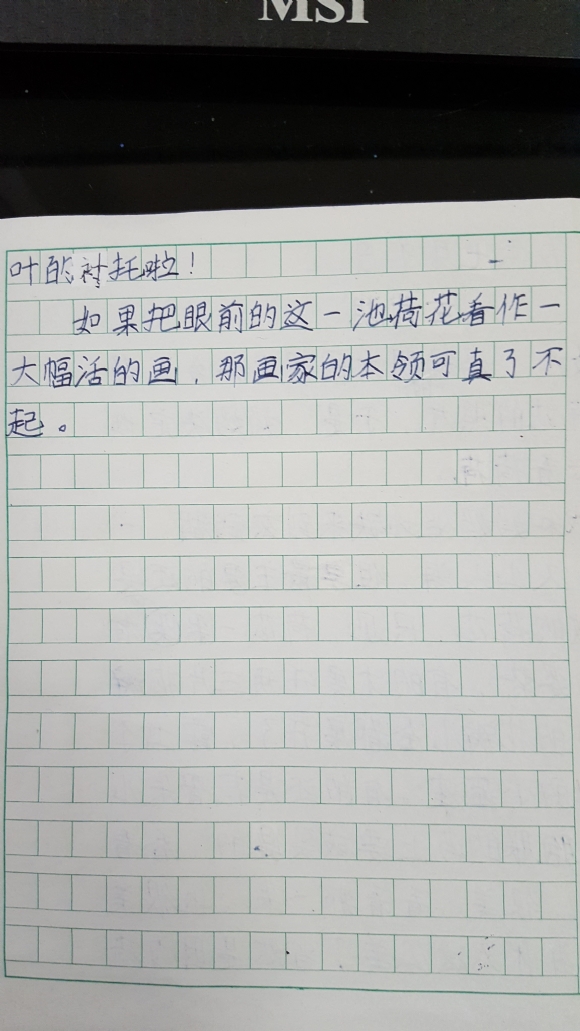 MSI
叶的衬托啦！
如果把眼前的这一池荷花看作一
大幅活的画，那画家的本领可真了不
起。